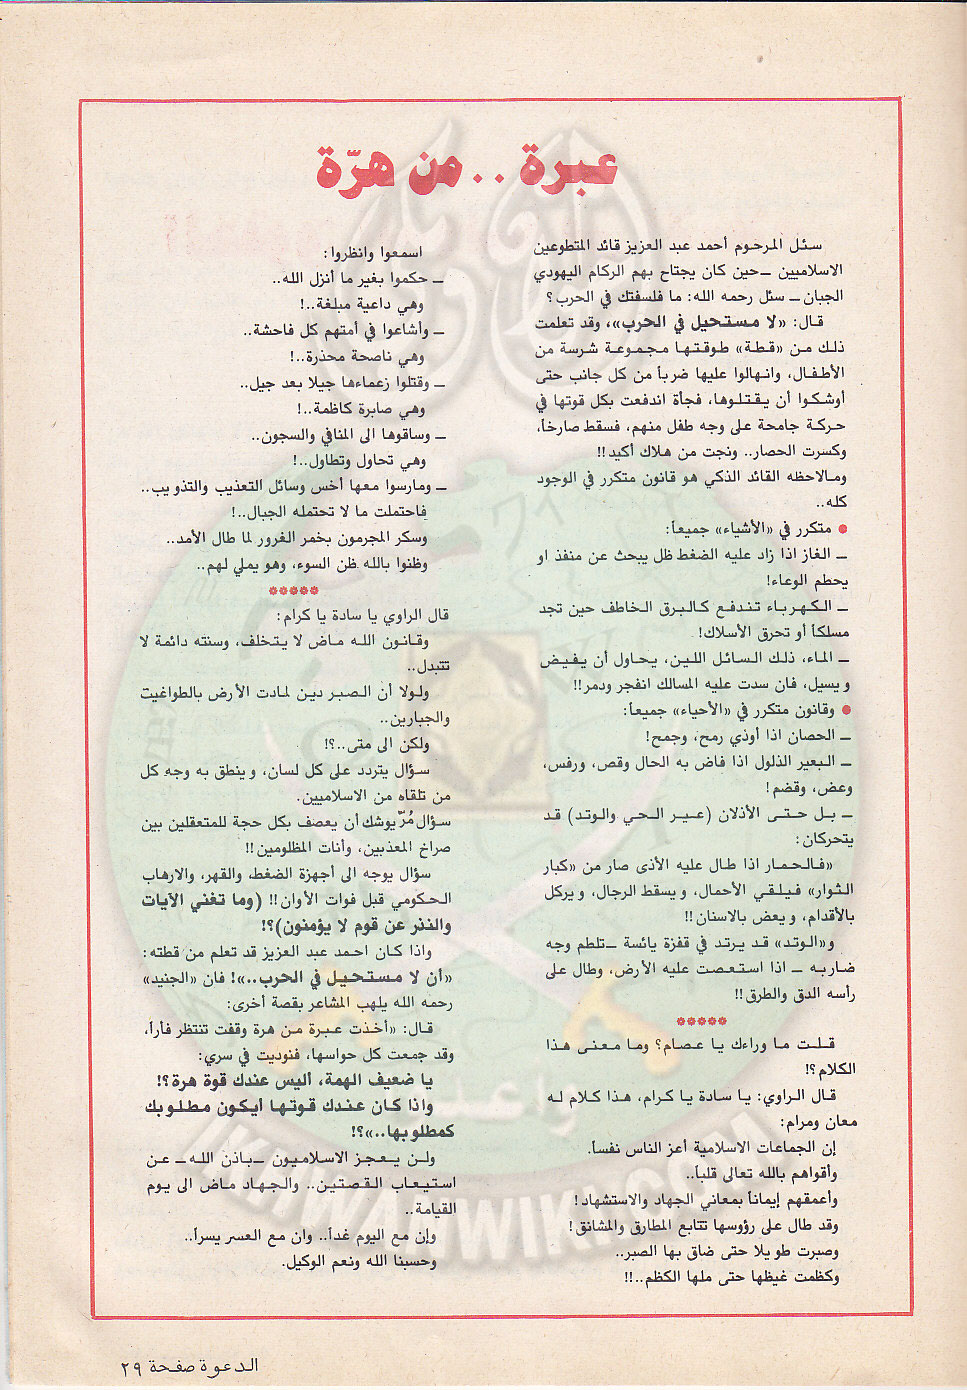 عبرة .. من هرّة
سئل المرحوم أحمد عبد العزيز قائد المتطوعين
الاسلاميين ــ حين كان يجتاح بهم الركام اليهودي
الجبان ــ سئل رحمه الله: ما فلسفتك في الحرب؟
قال: «لا مستحيل في الحرب»، وقد تعلمت
ذلك من «قطة» طوقتها مجموعة شرسة من
الأطفال، وانهالوا عليها ضرباً من كل جانب حتى
أوشكوا أن يقتلوها، فجأة اندفعت بكل قوتها في
حركة جامحة على وجه طفل منهم، فسقط صارخاً،
وكسرت الحصار.. ونجت من هلاك أكيد!!
ومالاحظه القائد الذكي هو قانون متكرر في الوجود
كله..
● متكرر في «الأشياء» جميعاً:
ــ الغاز اذا زاد عليه الضغط ظل يبحث عن منفذ او
يحطم الوعاء!
ــ الكهرباء تندفع كالبرق الخاطف حين تجد
مسلكاً أو تحرق الأسلاك!
ــ الماء، ذلك السائل اللين، يحاول أن يفيض
ويسيل، فان سدت عليه المسالك انفجر ودمر!!
● وقانون متكرر في «الأحياء» جميعاً:
ــ الحصان اذا أوذي رمح، وجمح!
ــ البعير الذلول اذا فاض به الحال وقص، ورفس،
وعض، وقضم!
ــ بل حتى الأذلان (عير الحي والوتد) قد
يتحركان:
«فالحمار اذا طال عليه الأذى صار من «كبار
الثوار» فيلقي الأحمال، ويسقط الرجال، ويركل
بالأقدام، ويعض بالاسنان!!
و«الوتد» قد يرتد في قفزة يائسة ــ تلطم وجه
ضاربه ــ اذا استعصت عليه الأرض، وطال على
رأسه الدق والطرق!!
*****
قلت ما وراءك يا عصام؟ وما معنى هذا
الكلام؟!
قال الراوي: يا سادة يا كرام، هذا كلام له
معان ومرام:
إن الجماعات الاسلامية أعز الناس نفساً.
وأقواهم بالله تعالى قلباً..
وأعمقهم إيماناً بمعاني الجهاد والاستشهاد!
وقد طال على رؤوسها تتابع المطارق والمشانق!
وصبرت طويلا حتى ضاق بها الصبر..
وكظمت غيظها حتى ملها الكظم..!!
اسمعوا وانظروا:
ــ حكموا بغير ما أنزل الله..
وهي داعية مبلغة..!
ــ وأشاعوا في أمتهم كل فاحشة..
وهي ناصحة محذرة..!
ــ وقتلوا زعماءها جيلا بعد جيل..
وهي صابرة كاظمة..!
ــ وساقوها الى المنافي والسجون..
وهي تحاول وتطاول..!
ــ ومارسوا معها أخس وسائل التعذيب والتذويب..
فاحتملت ما لا تحتمله الجبال..!
وسكر المجرمون بخمر الغرور لما طال الأمد..
وظنوا بالله ظن السوء، وهو يملي لهم..
*****
قال الراوي يا سادة يا كرام:
وقانون الله ماض لا يتخلف، وسنته دائمة لا
تتبدل..
ولولا أن الصبر دين لمادت الأرض بالطواغيت
والجبارين..
ولكن الى متى..؟!
سؤال يتردد على كل لسان، وينطق به وجه كل
من تلقاه من الاسلاميين.
سؤال مُرّ يوشك أن يعصف بكل حجة للمتعقلين بين
صراخ المعذبين، وأنات المظلومين!!
سؤال يوجه الى أجهزة الضغط، والقهر، والارهاب
الحكومي قبل فوات الأوان!! (وما تغني الآيات
والنذر عن قوم لا يؤمنون)؟!
واذا كان احمد عبد العزيز قد تعلم من قطته:
«أن لا مستحيل في الحرب..»! فان «الجنيد»
رحمه الله يلهب المشاعر بقصة أخرى:
قال: «أخذت عبرة من هرة وقفت تنتظر فأراً،
وقد جمعت كل حواسها، فنوديت في سري:
يا ضعيف الهمة، أليس عندك قوة هرة؟!
واذا كان عندك قوتها أيكون مطلوبك
كمطلوبها..»؟!
ولن يعجز الاسلاميون ــ باذن الله ــ عن
استيعاب القصتين.. والجهاد ماض الى يوم
القيامة..
وإن مع اليوم غداً.. وان مع العسر يسرأ..
وحسبنا الله ونعم الوكيل.
الدعوة صفحة ٢٩
IKHWANWIKI.COM